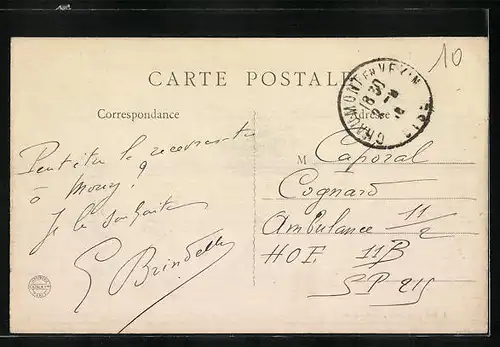 10
CARTE POSTALE
CHAUMONT EN VEXIN
18 30
OISE
Correspondance
Adresse
Peut être le recevras-tu
à Mouy ?
Je le souhaite
G Brindelle
M Caporal
Cognard
Ambulance 11/2
HOE 11B
SP 215